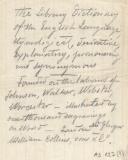 The Library Dictionary
of the English Language
Etymological, Derivative
Explanatory, pronouncing
and synonymous
Founded on the labours of
Johnson, Walker, Webster
Worcester — illustrated by
one thousand engravings
on Wood — London and Glasgow
William Collins, sons &